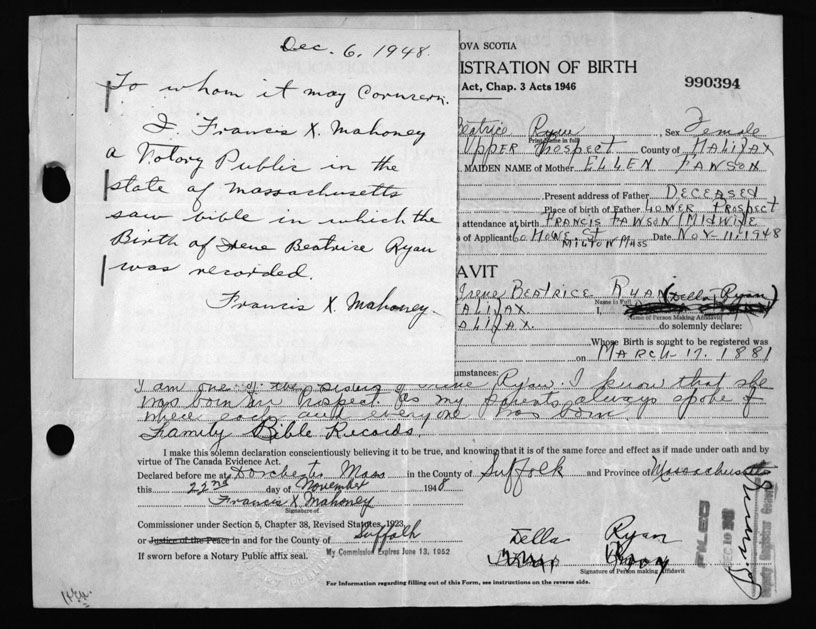 Dec. 6, 1948.
To whom it may Cornzern.
I. Francis X. Mahoney
a Notory Public in the
state of Massachusetts
saw bible in which the
Birth of Irene Beatrice Ryan
was recorded.
Francis X. Mahoney.
OVA SCOTIA
ISTRATION OF BIRTH
990394
Act, Chap. 3 Acts 1946
Beatrice Ryan Sex Female
Print name in full
Upper Prospect County of HALIFAX
MAIDEN NAME of Mother ELLEN FAWSON
Present address of Father DECEASED
Place of birth of Father LOWER PROSPECT
attendance at birth FRANCIS FAWSON (MIDWIFE
s of Applicant 60 HOWE ST Date NOV-11-1948
MILTON MASS
AVIT
Irene BEATRICE RYAN (Della Ryan)
Name in Full
ALIFAX I,
Name of Person Making Affidavit
ALIFAX. do solemnly declare:
Whose Birth is sought to be registered was
on MARCH-17. 1881
cumstances:
I am one of the sisters of Irene Ryan. I know that she
was born in Prospect as my parents always spoke of
where each and everyone was born.
Family Bible Records.
I make this solemn declaration conscientiously believing it to be true, and knowing that it is of the same force and effect as if made under oath and by
virtue of The Canada Evidence Act.
Declared before me at Dorchester Mass in the County of Suffolk and Province of Massachusetts
this 22nd day of November 1948
Francis X Mahoney
Signature of
Commissioner under Section 5, Chapter 38, Revised Statutes, 1923,
or Justice of the Peace in and for the County of Suffolk
If sworn before a Notary Public affix seal. My Commission Expires June 13, 1952
Della Ryan
Signature of Person making Affidavit
FILED
DEC 10
Deputy Registrar General
For Information regarding filling out of this Form, see instructions on the reverse side.